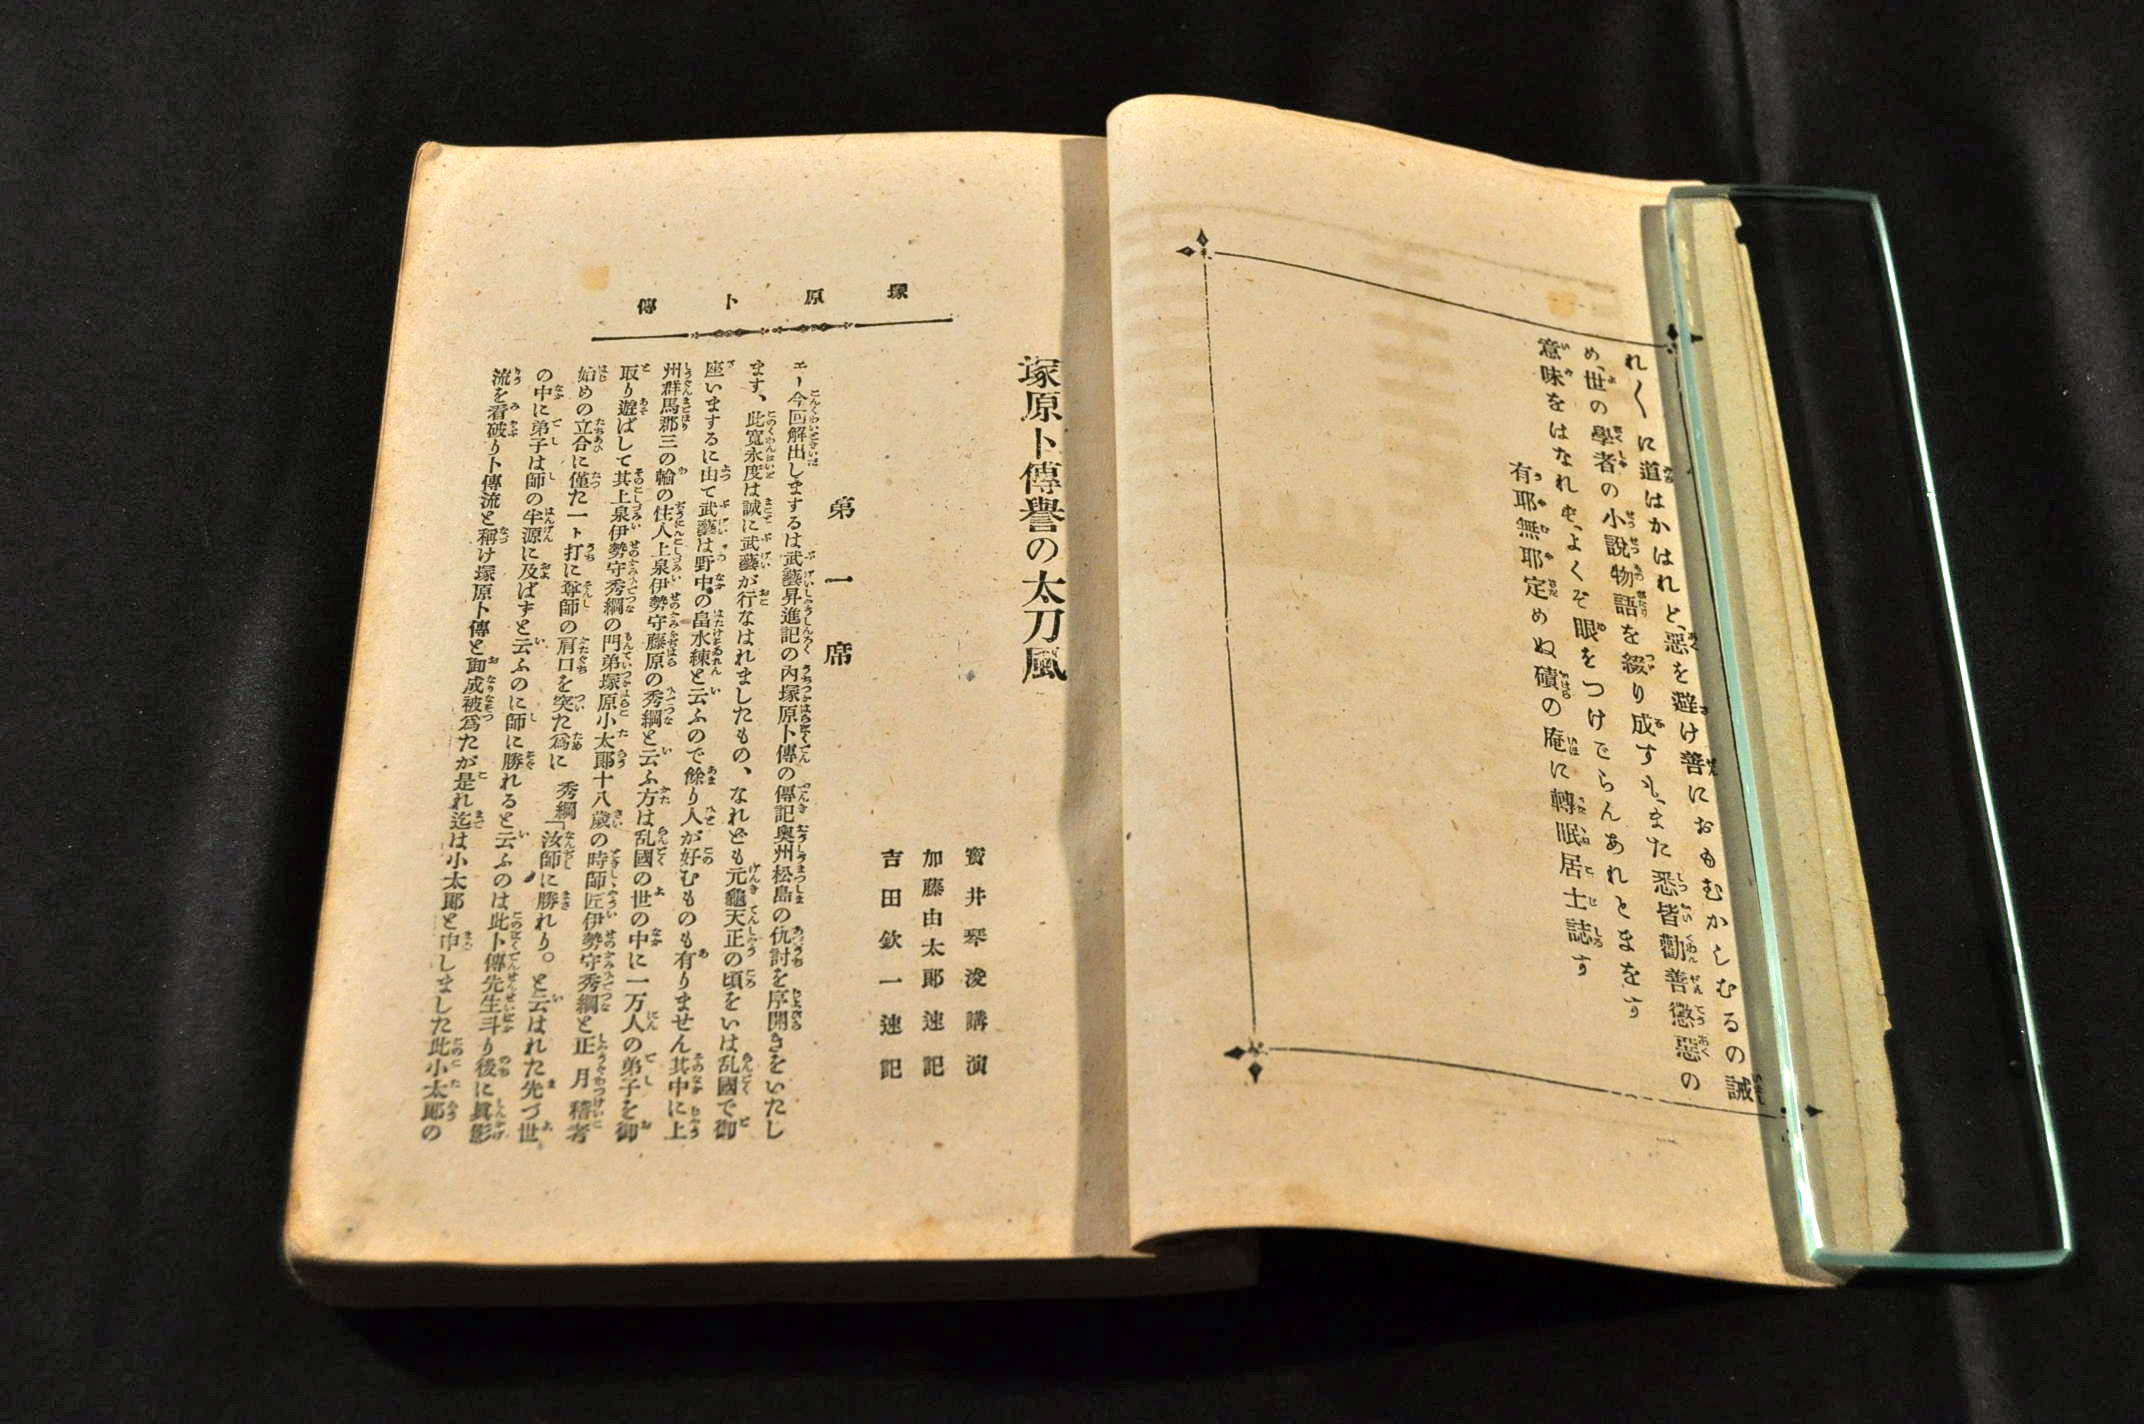 れ〱に道はかはれど、惡を避け善におもむかしむるの誡
め、世の學者の小說物語を綴り成すも、また悉皆勸善懲惡の
意味をはなれず、よくぞ眼をつけてらんあれとまをす
有耶無耶定めぬ磧の庵に轉眠居士誌す
塚原卜傳
塚原卜傳譽の太刀風
寳井琴凌講演
加藤由太郞速記
吉田欽一速記
第一席
エー今回解出しまするは武藝昇進記の內塚原卜傳の傳記奥州松島の仇討を序開きをいたし
ます、此寬永度は誠に武藝が行なはれましたもの、なれども元龜天正の頃をいは乱國で御
座いまするに由て武藝は野中の畠水練と云ふので餘り人が好むものも有りません其中に上
州群馬郡三の輪の住人上泉伊勢守藤原の秀綱と云ふ方は乱國の世の中に一万人の弟子を御
取り遊ばして其上泉伊勢守秀綱の門弟塚原小太郞十八歲の時師匠伊勢守秀綱と正月稽者
始めの立合に僅た一ト打に尊師の肩口を突た爲に 秀綱「汝師に勝れり。と云はれた先づ世
の中に弟子は師の半源に及ばずと云ふのに師に勝れると云ふのは此卜傳先生斗り後に眞影
流を看破り卜傳流と稱け塚原卜傳と御成被爲たが是れ迄は小太郞と申しました此小太郞の